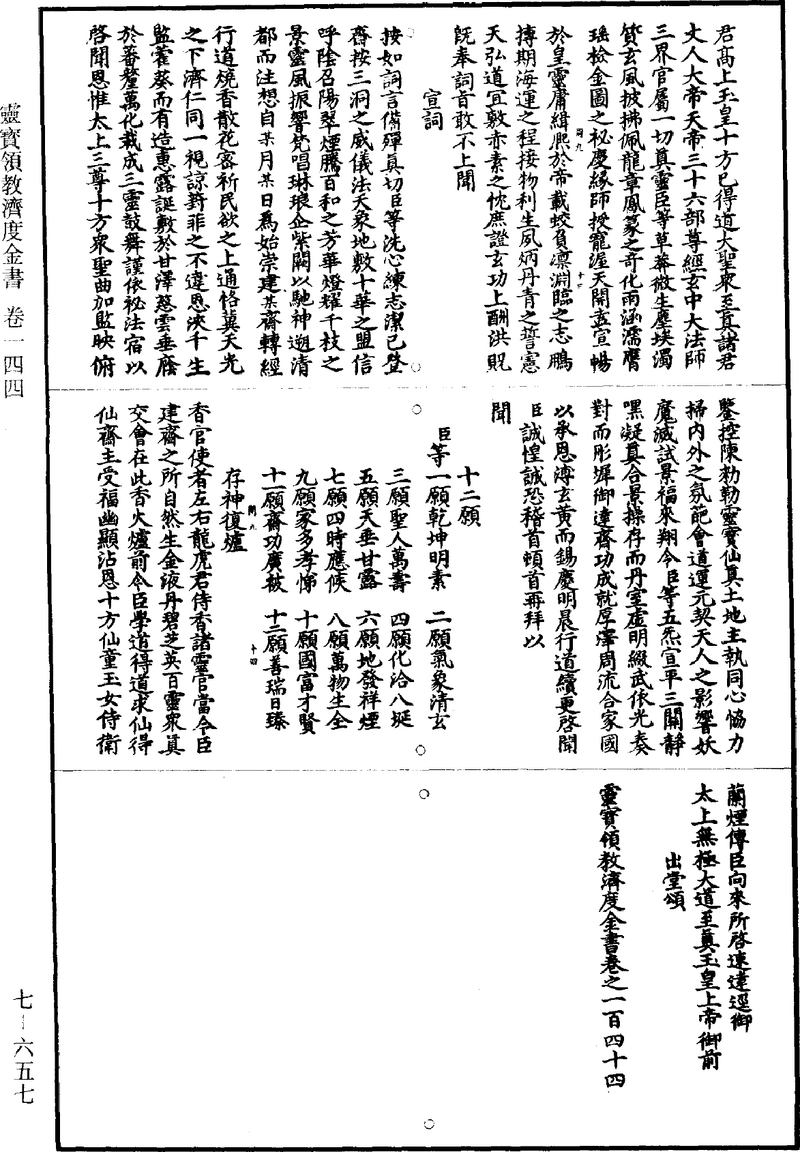 君高上玉皇十方已得道大聖衆至真諸君
丈人大帝天帝三十六部尊經玄中大法師
三界官屬一切真靈臣等草莽微生塵埃濁
質玄風披拂佩龍章鳳篆之奇化雨涵濡膺
瑤檢金圖之祕慶緣師授寵渥天開盍宣暢
於皇靈庸緝熙於帝載蛟負凛淵臨之志鵬
摶期海運之程接物利生夙炳丹青之誓憲
天弘道宜敷赤素之忱庶證玄功上酬洪貺
旣奉詞旨敢不上聞
宣詞
按如詞言備殫真切臣等洗心練志潔己登
齋按三洞之威儀法天象地敷十華之盟信
呼陰召陽翠煙騰百和之芳華燈耀千枝之
景靈風振響梵唱琳琅企紫闕以馳神遡清
都而注想自某月某日為始崇建某齋轉經
行道燒香散花寄祈民欲之上通恪冀天光
之下濟仁同一視諒葑菲之不遺恩浹千生
監藿葵而有造惠露誕敷於甘澤慈雲垂廕
於蕃釐萬化裁成三靈鼓舞謹依祕法宿以
啓聞恩惟太上三尊十方衆聖曲加監映俯
鑒控陳勑勒靈寶仙真土地主執同心恊力
掃內外之氛葩會道運元契天人之影響妖
魔滅試景福來翔今臣等五炁宣平三關靜
嘿凝真合景操存而丹室虛明綴武依光奏
對而彤墀御達齋功成就厚澤周流合家國
以承恩溥玄黃而錫慶明晨行道續更啓聞
臣誠惶誠恐稽首頓首再拜以
聞
十二願
臣等一願乾坤明素 二願氣象清玄
三願聖人萬壽 四願化洽八埏
五願天垂甘露 六願地發祥煙
七願四時應候 八願萬物生全
九願家多孝悌 十願國富才賢
十一願齋功廣被 十二願善瑞日臻
存神復爐
香官使者左右龍虎君侍香諸靈官當令臣
建齋之所自然生金液丹碧芝英百靈衆真
交會在此香火爐前令臣學道得道求仙得
仙齋主受福幽顯沾恩十方仙童玉女侍衛
蘭煙傳臣向來所啓速達逕御
太上無極大道至真玉皇上帝御前
出堂頌
靈寶領教濟度金書卷之一百四十四
靈寶領教濟度金書 卷一四四
七－六五七